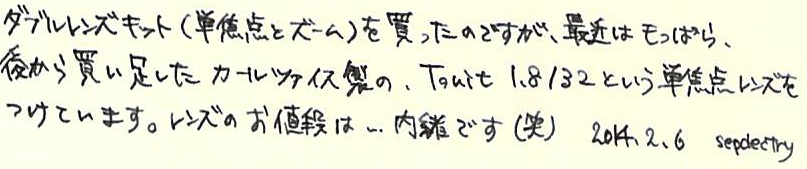 ダブルレンズキット(単焦点とズーム)を買ったのですが、最近はもっぱら、
後から買い足したカールツァイス製の、Touit 1.8/32という単焦点レンズを
つけています。レンズのお値段は…内緒です(笑) 2014.2.6 sepdectry